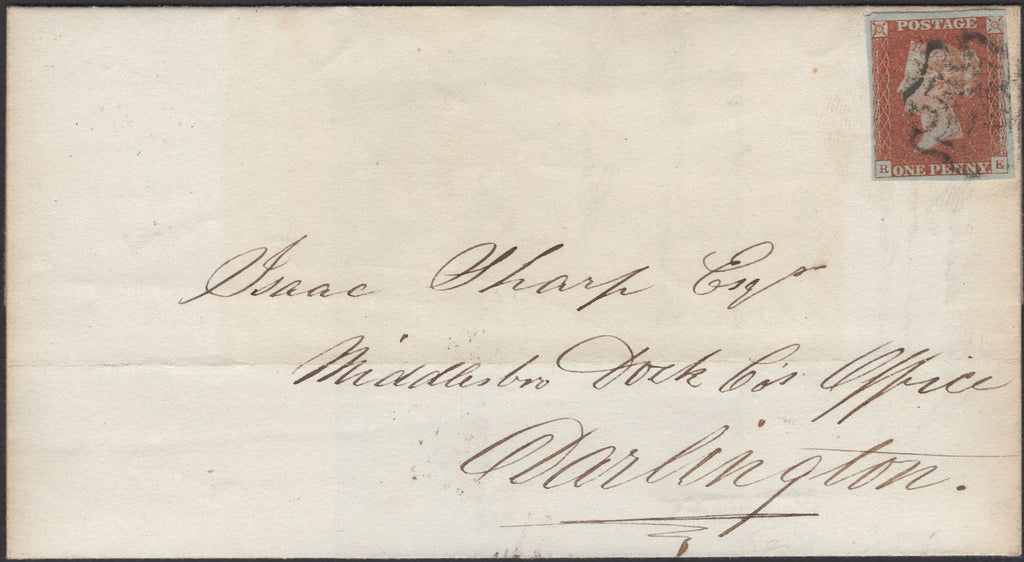 POSTAGE
R ONE PENNY E
Isaac Sharp Esqr
Middlesbro Dock Co's Office
Darlington.